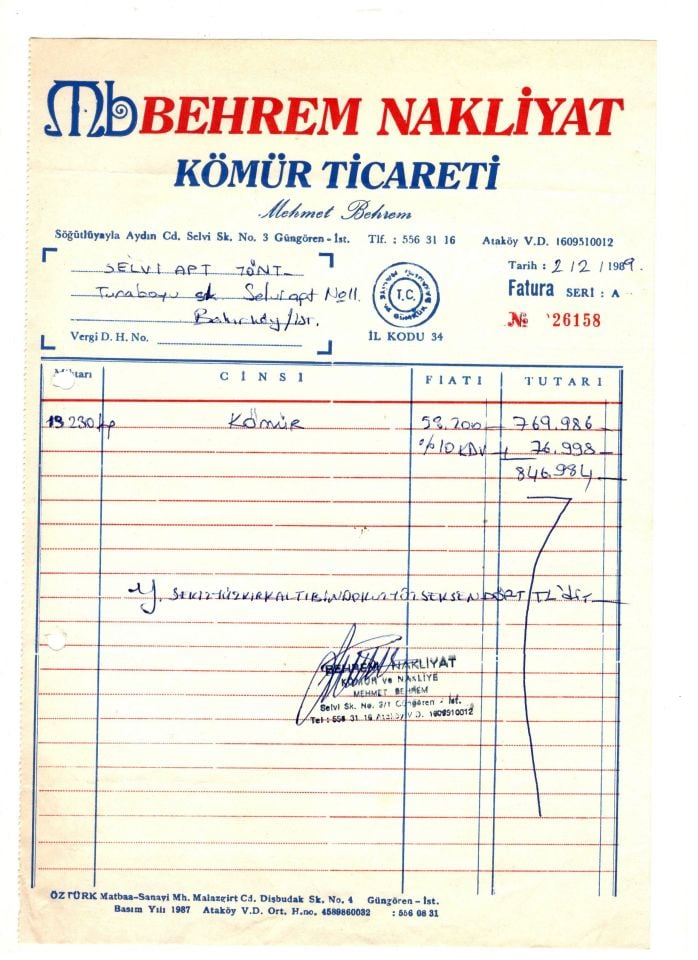 Mb BEHREM NAKLİYAT
KÖMÜR TİCARETİ
Mehmet Behrem
Söğütlüyayla Aydın Cd. Selvi Sk. No. 3 Güngören-İst. Tlf. : 556 31 16 Ataköy V.D. 1609510012
SELVİ APT YÖNT_ Tarih : 2 / 2 / 1989.
Turaboyu sk Selvi apt No 11. T.C. Fatura SERİ : A
Bakırköy/İst. № 26158
Vergi D. H. No. İL KODU 34
CİNSİ FİATI TUTARI
13 230 Kömür 58.200 769.986
%10 KDV + 76.998
846.984
Y. SEKİZYÜZKIRKALTIBİNDOKUZYÜZSEKSENDÖRT TL'dir
BEHREM NAKLİYAT
KÖMÜR ve NAKLİYE
MEHMET BEHREM
Selvi Sk. No. 3/1 Güngören - İst.
Tel : 556 31 16 Ataköy V.D. 1609510012
ÖZTÜRK Matbaa-Sanayi Mh. Malazgirt Cd. Dişbudak Sk. No. 4 Güngören - İst.
Basım Yılı 1987 Ataköy V.D. Ort. H.no. 4589860032 : 556 08 31